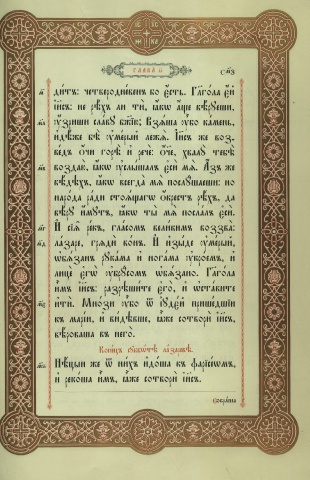 ГЛАВА̀ а҃і
см҃з
ди́тъ: четвероднє́венъ бо є҆́сть. Гл҃го́ла є҆́й
і҆и҃съ: не рѣ́хъ ли тѝ, ꙗ҆́кѡ а҆́ще вѣ́рꙋеши,
ᲂу҆́зриши сла́вꙋ бж҃їю; Взѧ́ша ᲂу҆̀бо ка́мень,
и҆дѣ́же бѣ̀ ᲂу҆ме́рый лежѧ̀. І҆и҃съ же воз-
ведѐ ѻ҆́чи горѣ̀ и҆ речѐ: ѻ҆́ч҃е, хвалꙋ̀ тебѣ̀
воздаю̀, ꙗ҆́кѡ ᲂу҆слы́шалъ є҆сѝ мѧ̀. А҆́зъ же
вѣ́дѣхъ, ꙗ҆́кѡ всегда̀ мѧ̀ послꙋ́шаеши: но
наро́да ра́ди стоѧ́щагѡ ѻ҆́крестъ рѣ́хъ, да
вѣ́рꙋ и҆́мꙋтъ, ꙗ҆́кѡ ты̀ мѧ̀ посла́лъ є҆сѝ.
И҆ сїѧ̑ ре́къ, гла́сомъ вели́кимъ воззва̀:
ла́заре, грѧдѝ во́нъ. И҆ и҆зы́де ᲂу҆ме́рый,
ѡ҆бѧ́занъ рꙋка́ма и҆ нога́ма ᲂу҆кро́емъ, и҆
лицѐ є҆гѡ̀ ᲂу҆брꙋ́сомъ ѡ҆бѧ́зано. Гл҃го́ла
и҆̀мъ і҆и҃съ: разрѣши́те є҆го̀, и҆ ѡ҆ста́вите
и҆тѝ. Мно́зи ᲂу҆̀бо ѿ і҆ꙋдє́й прише́дшїи
къ марі́и, и҆ ви́дѣвше, ꙗ҆̀же сотворѝ і҆и҃съ,
вѣ́роваша въ него̀.
Коне́цъ сꙋббѡ́тѣ ла́заревѣ.
Нѣ́цыи же ѿ ни́хъ и҆до́ша къ фарїсе́ѡмъ,
и҆ реко́ша и҆̀мъ, ꙗ҆̀же сотворѝ і҆и҃съ.
Собра́ша